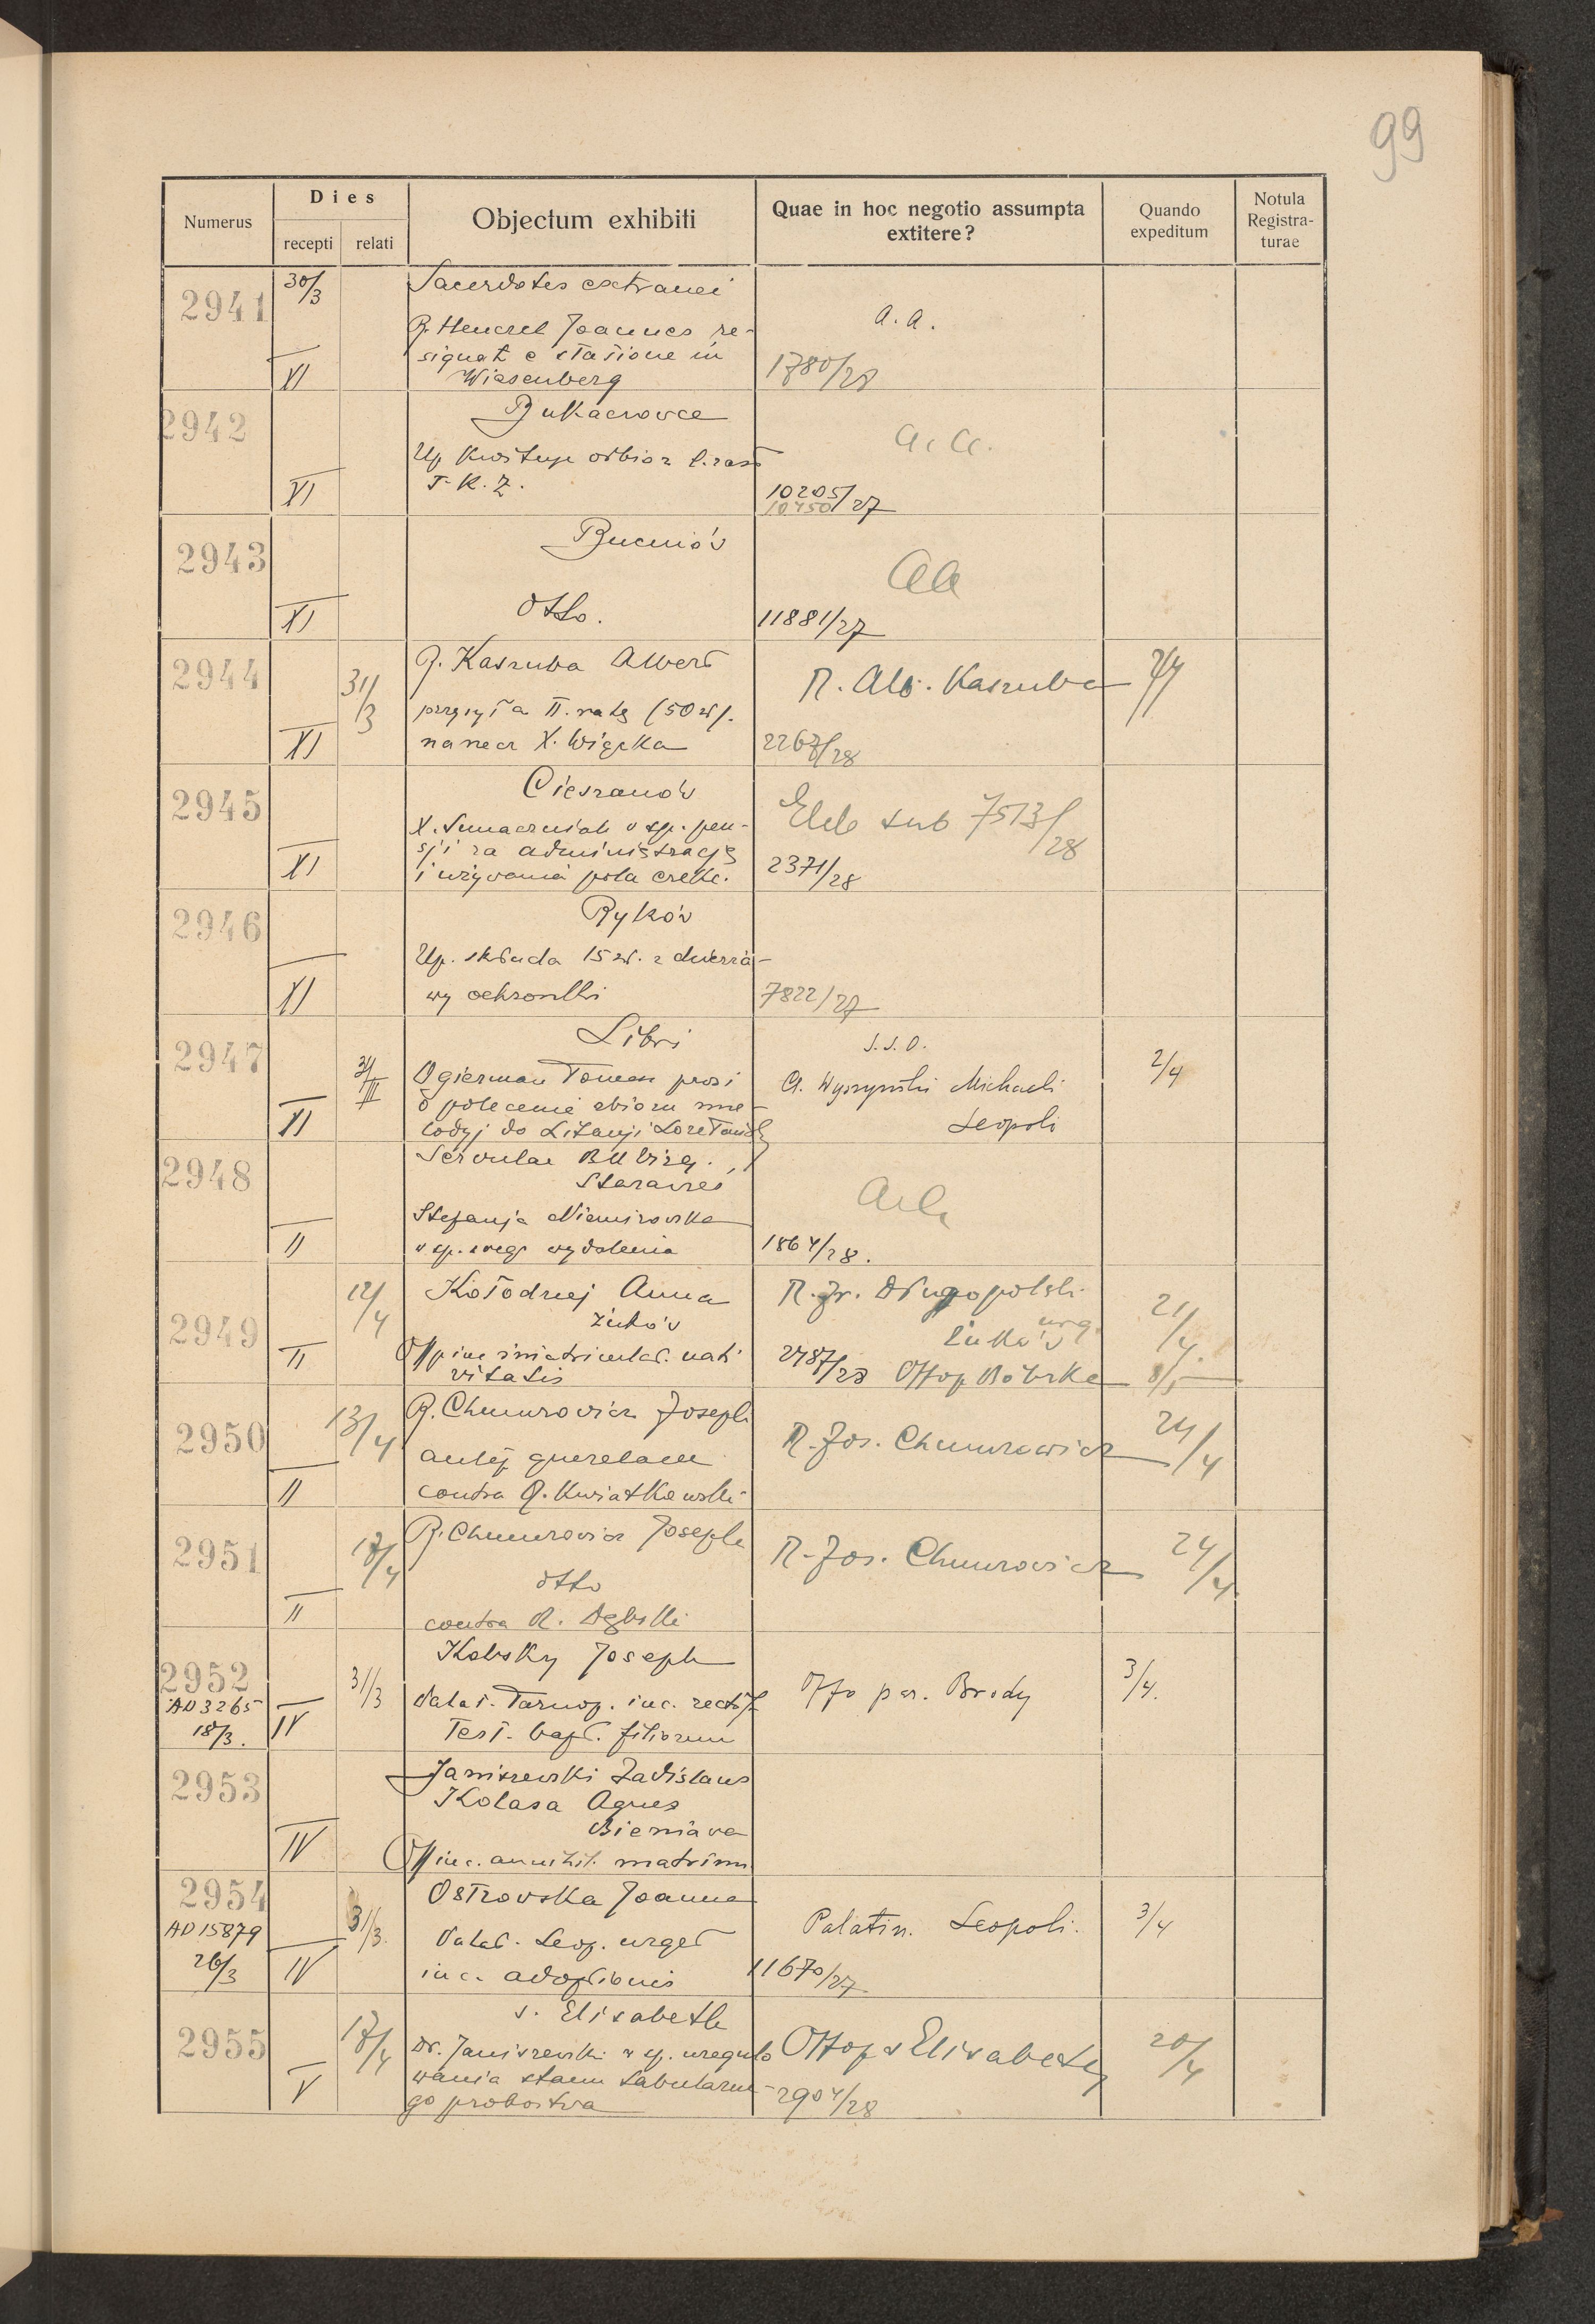 99
Numerus
Dies
recepti relati
Objectum exhibiti
Quae in hoc negotio assumpta
extitere?
Quando
expeditum
Notula
Registra-
turae
2941
30/3
XI
Sacerdotes extranei
R. Henczel Joannes re-
signat e statione in
Wiesenberg
a. a.
1780/28
2942
XI
Bukaczowce
Up. kwituje odbiór
T. K. Z.
a. a.
10205/27
10450
2943
XI
Bucniów
dtto.
aa
11881/27
2944
31/3
XI
R. Kaszuba Albert
przysyła II. ratę (50 zł).
na rzecz X. Więcka
R. Alb. Kaszuba
2267/28
2/4
2945
XI
Cieszanów
X. Sumaczniak w sp. pen-
sji za administrację
i używania pola
Elab sub 7513/28
2371/28
2946
XI
Ryków
Up. składa 15 zł. z dzierża-
wy ochronki
7822/27
2947
31/III
XI
Libri
Ogierman Tomasz prosi
o polecenie zbioru me-
lodyj do Litanji Loretańsk
S. S. D.
A. Wyszyński Michaeli
Leopoli
2/4
2948
II
Servulae BM Virg.
Starawieś
Stefanja Niemirowska
w sp. swego wydalenia
aa
1864/28.
2949
12/4
II
Kołodziej Anna
Żuków
Offp inc immatriculat. nati
vitatis
R. Fr. Długopolski
Żuków urg
2487/28 Offop Bóbrka
21/4.
8/5
2950
13/4
II
R. Chmurowicz Joseph
querelam
contra R. Kwiatkowski
R. Jos. Chmurowicz
24/4
2951
17/4
II
R. Chmurowicz Joseph
dtto
contra R. Dębski
R. Jos. Chmurowicz
24/4
2952
AD 3265
18/3.
31/3
IV
Kobsky Joseph
Palat. Tarnop. inc. rectif
test. bapt. filiorum
Offo par. Brody
3/4.
2953
IV
Janiszewski Ladislaus
Kolasa Agnes
Bieniawa
Off inc. annihil. matrim
2954
AD 15879
26/3
31/3.
IV
Ostrowska Joanna
Palat. Leop. urget
inc. adoptionis
Palatin. Leopoli.
11670/27
3/4
2955
17/4
V
s. Elisabeth
Dr. Janiszewski w sp. uregulo
wania stanu tabularne-
go probostwa
Offop s Elisabeth
2904/28
20/4